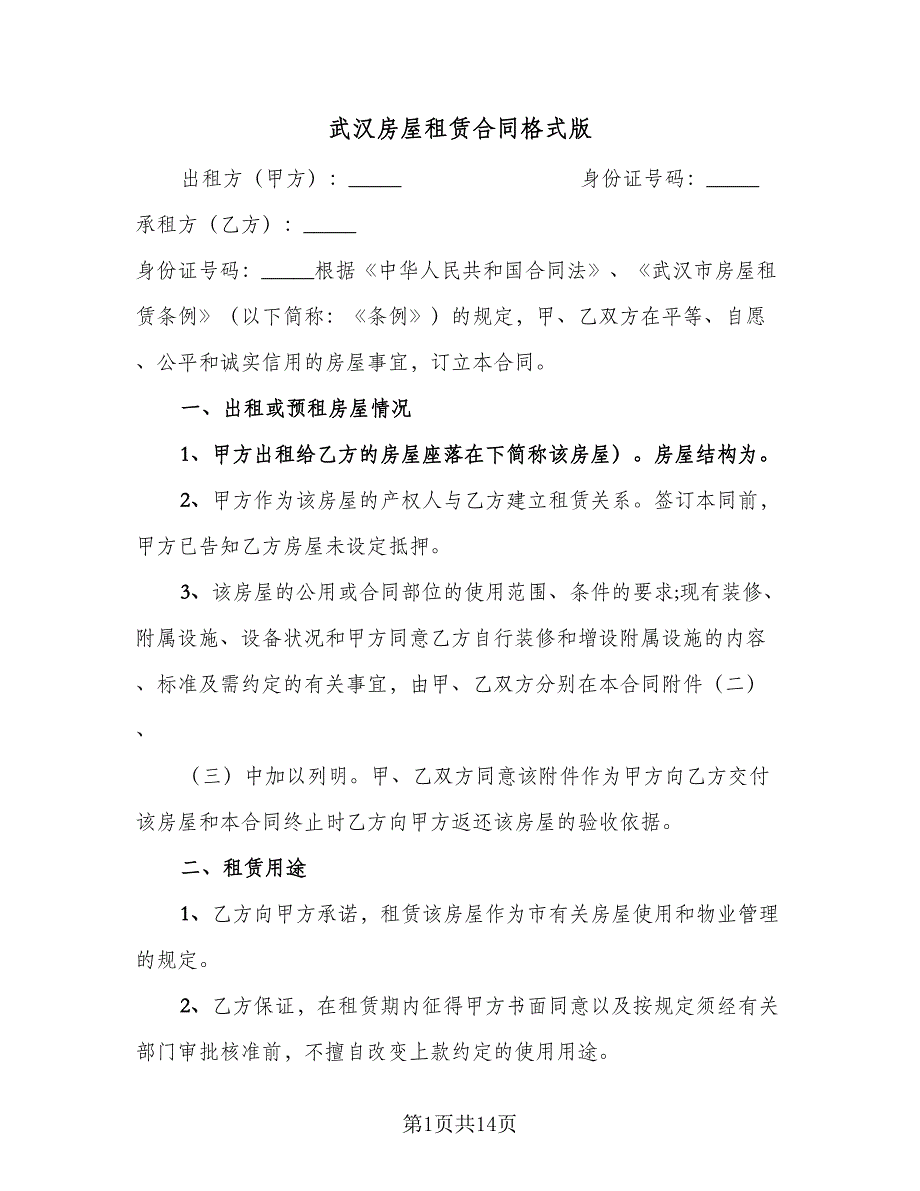 武汉房屋租赁合同格式版
出租方（甲方）：_____ 身份证号码：_____
承租方（乙方）：_____
身份证号码：_____根据《中华人民共和国合同法》、《武汉市房屋租
赁条例》（以下简称：《条例》）的规定，甲、乙双方在平等、自愿
、公平和诚实信用的房屋事宜，订立本合同。
一、出租或预租房屋情况
1、甲方出租给乙方的房屋座落在下简称该房屋）。房屋结构为。
2、甲方作为该房屋的产权人与乙方建立租赁关系。签订本同前，
甲方已告知乙方房屋未设定抵押。
3、该房屋的公用或合同部位的使用范围、条件的要求;现有装修、
附属设施、设备状况和甲方同意乙方自行装修和增设附属设施的内容
、标准及需约定的有关事宜，由甲、乙双方分别在本合同附件（二）
、
（三）中加以列明。甲、乙双方同意该附件作为甲方向乙方交付
该房屋和本合同终止时乙方向甲方返还该房屋的验收依据。
二、租赁用途
1、乙方向甲方承诺，租赁该房屋作为市有关房屋使用和物业管理
的规定。
2、乙方保证，在租赁期内征得甲方书面同意以及按规定须经有关
部门审批核准前，不擅自改变上款约定的使用用途。
第1页共14页